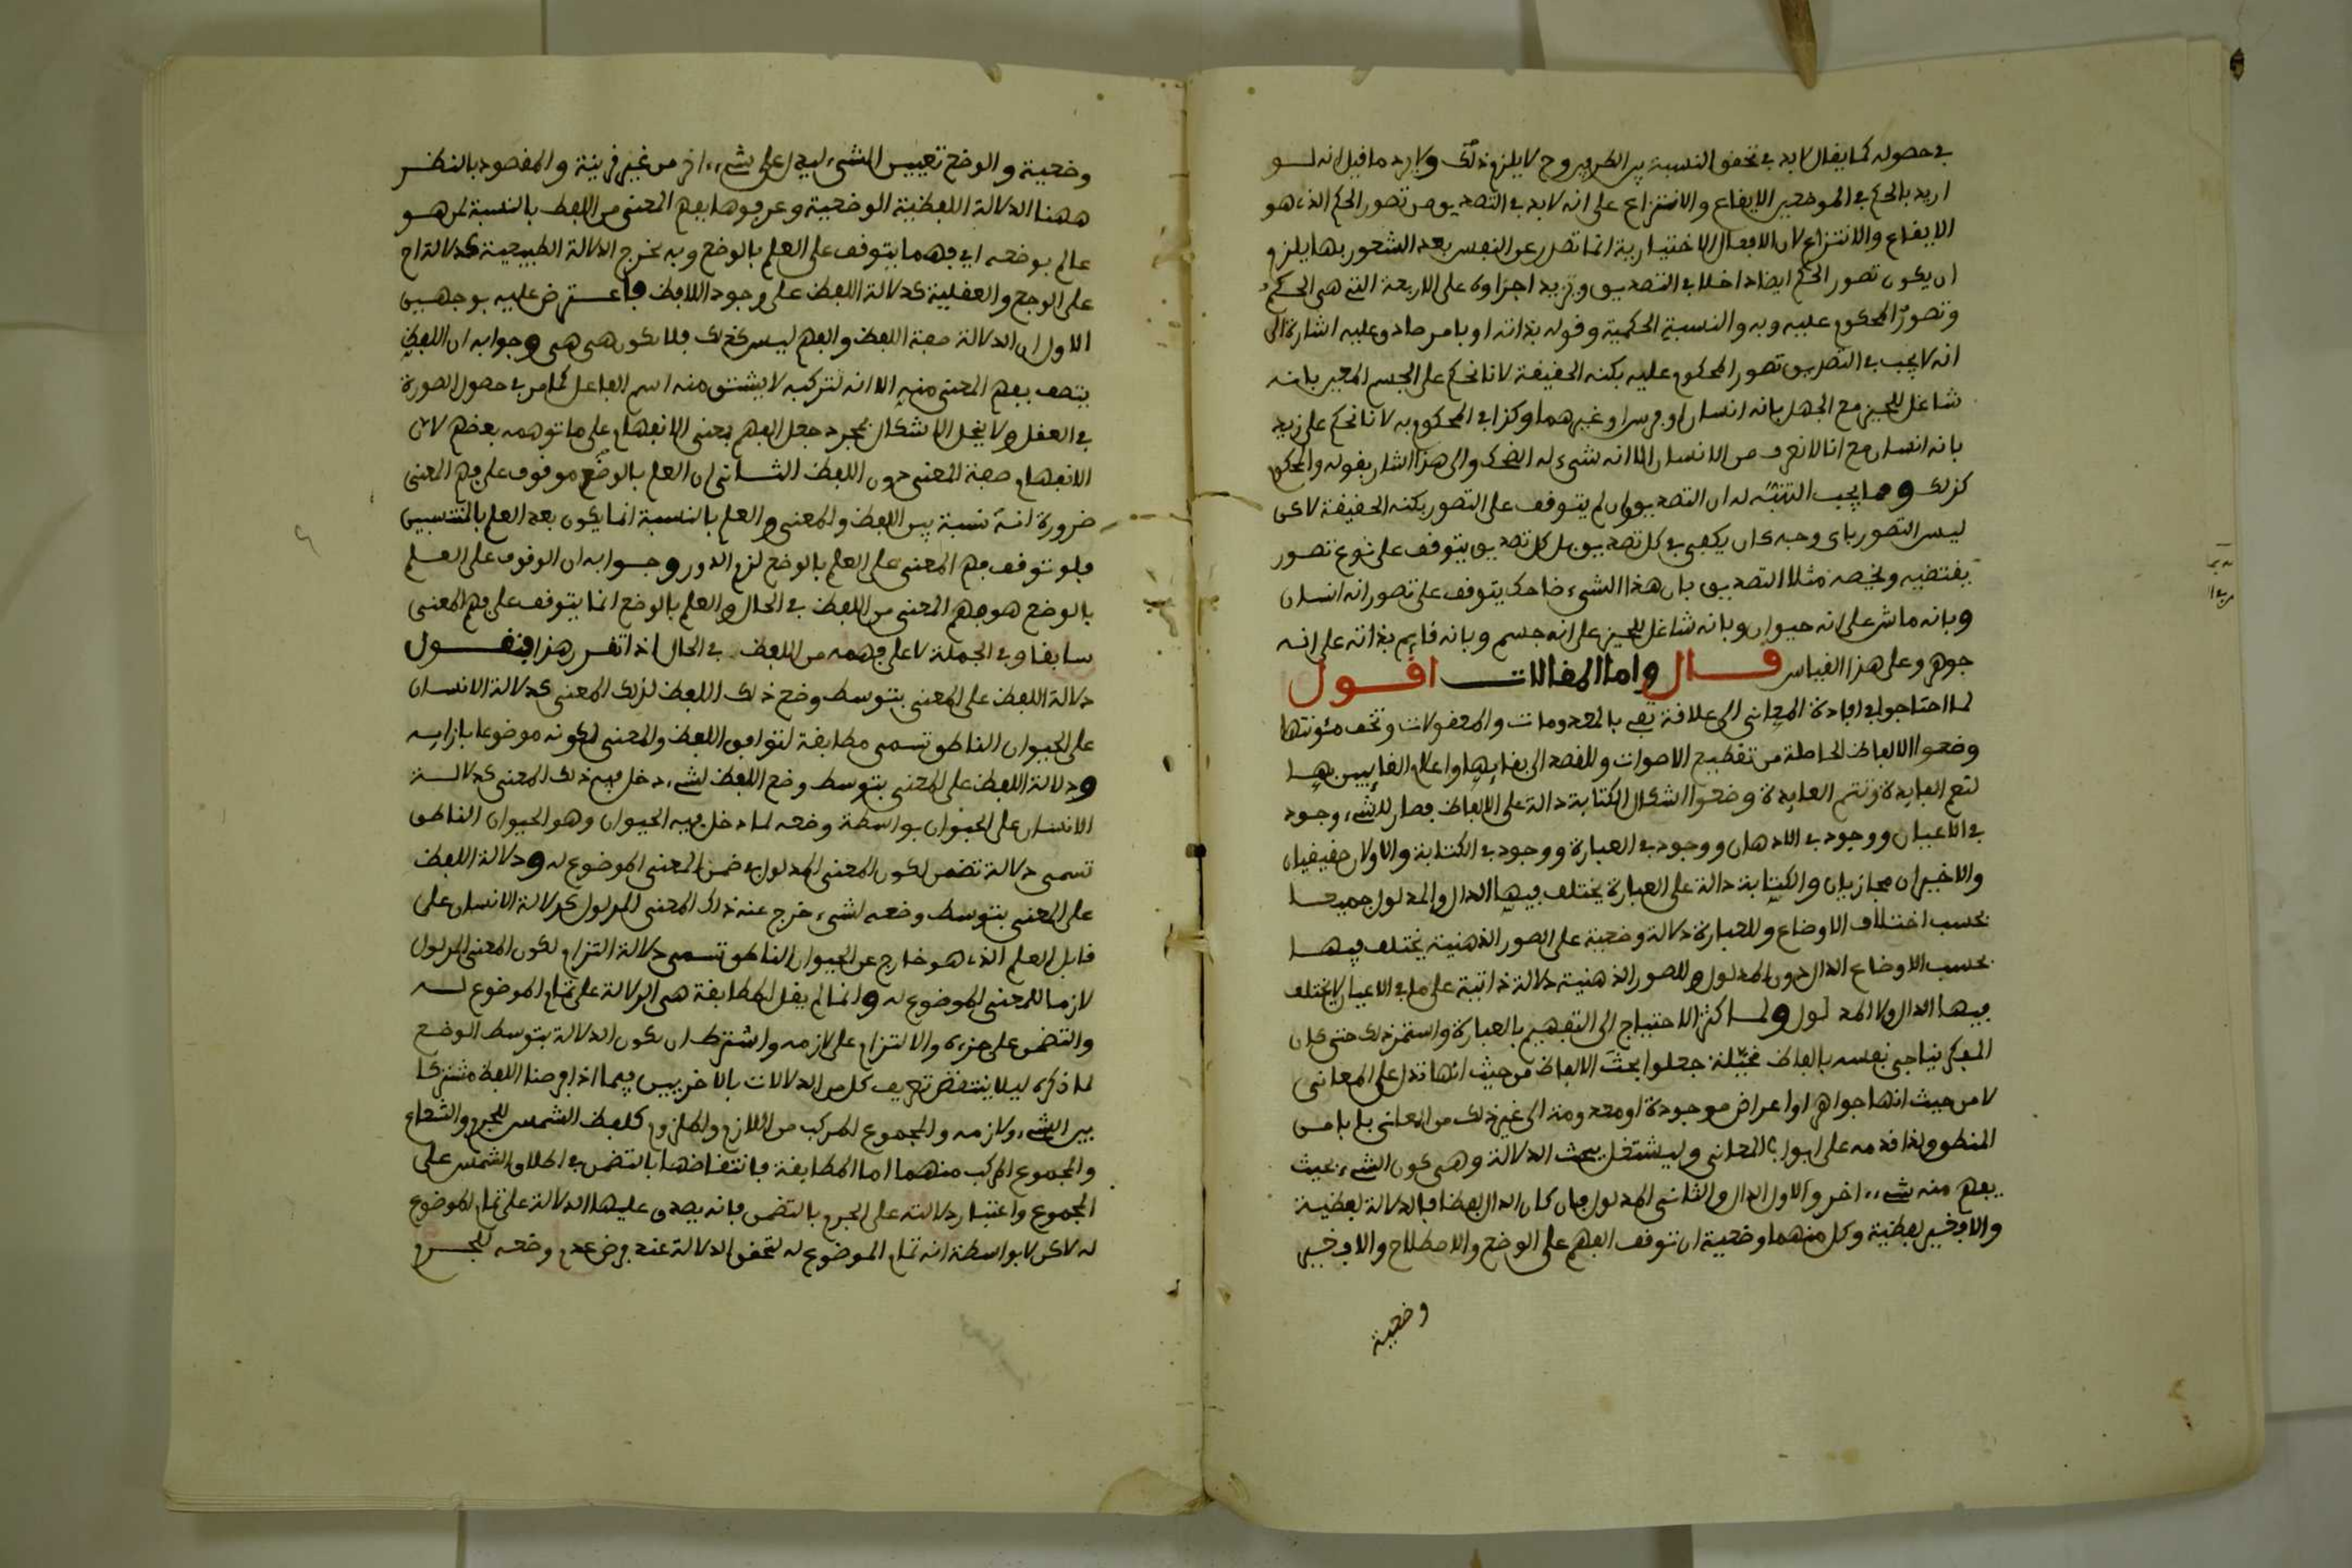 في حصوله كما يقال لابد في تحقق النسبة من الطرفين وح لا يلزم ذلك ولا يرد ما قيل انه لو
اريد بالحكم في الموضعين الايقاع والانتزاع على انه لابد في التصديق من تصور الحكم الذي هو
الايقاع والانتزاع لان الافعال الاختيارية انما تصدر عن النفس بعد الشعور بها يلزم
ان يكون تصور الحكم ايضا داخلا في التصديق وتزيد اجزاوه على الاربعة التي هي الحكم
وتصور المحكوم عليه وبه والنسبة الحكمية وقوله بذاته او بامر صادق عليه اشارة الى
انه لا يجب في التصديق تصور المحكوم عليه بكنه الحقيقة لانا نحكم على الجسم المعين بانه
شاغل للحيز مع الجهل بانه انسان او فرس او غيرهما وكذا في المحكوم به لانا نحكم على زيد
بانه انسان مع انا لا نعرف من الانسان الا انه شيء له الضحك والى هذا اشار بقوله والحكم
كذلك ومما يجب التنبه له ان التصديق وان لم يتوقف على التصور بكنه الحقيقة لاكن
ليس التصور باى وجه كان يكفي في كل تصديق بل كل تصديق يتوقف على نوع تصور
يقتضيه ويخصه مثلا التصديق بان هذا الشيء ضاحك يتوقف على تصور انه انسان
وبانه ماش على انه حيوان وبانه شاغل للحيز على انه جسم وبانه قايم بذاته على انه
جوهر وعلى هذا القياس قال واما المقالات اقول
لما احتاجوا في افادة المعاني الى علاقة يفي بالمعدومات والمعقولات وتخف مئونتها
وضعوا الالفاظ الحاصلة من تقطيع الاصوات وللقصد الى بقايها واعلام الغايبين بها
لتعم الفايدة وتتم العايدة وضعوا اشكال الكتابة دالة على الالفاظ فصار للشيء وجود
في الاعيان ووجود في الاذهان ووجود في العبارة ووجود في الكتابة والاولان حقيقيان
والاخيران مجازيان والكتابة دالة على العبارة يختلف فيها الدال والمدلول جميعا
بحسب اختلاف الاوضاع وللعبارة دلالة وضعية على الصور الذهنية يختلف فيها
بحسب الاوضاع الدال دون المدلول وللصور الذهنية دلالة ذاتية على ما في الاعيان لا يختلف
فيها الدال ولا المدلول ولما كثر الاحتياج الى التفهيم بالعبارة واستمر ذلك حتى كان
المفكر يناجي نفسه بالفاظ مخيلة جعلوا بحث الالفاظ من حيث انها تدل على المعاني
لا من حيث انها جواهر او اعراض موجودة او معدومة الى غير ذلك من المعاني بابا من
المنطق ولذا قدمه على ابواب المعاني وليشتغل ببحث الدلالة وهي كون الشيء بحيث
يفهم منه شيء اخر والاول الدال والثاني المدلول فان كان الدال لفظا فالدلالة لفظية
والا فغير لفظية وكل منهما وضعية ان توقف الفهم على الوضع والاصطلاح والا فغير
وضعية
وضعية والوضع تعيين الشيء ليدل على شيء اخر من غير قرينة والمقصود بالنظر
ههنا الدلالة اللفظية الوضعية وعرفوها بفهم المعنى من اللفظ بالنسبة لمن هو
عالم بوضعه اي فهما يتوقف على العلم بالوضع وبه تخرج الدلالة الطبيعية كدلالة اح
على الوجع والعقلية كدلالة اللفظ على وجود اللافظ فاعترض عليه بوجهين
الاول ان الدلالة صفة اللفظ والفهم ليس كذلك فلا يكون هي هي وجوابه ان اللفظ
يتصف بفهم المعنى منه الا انه لتركبه لا يشتق منه اسم الفاعل كما مر في حصول الصورة
في العقل ولا ينحل الاشكال بمجرد جعل الفهم بمعنى الانفهام على ما توهمه بعضهم لان
الانفهام صفة المعنى دون اللفظ الثاني ان العلم بالوضع موقوف على فهم المعنى
ضرورة انه نسبة بين اللفظ والمعنى والعلم بالنسبة انما يكون بعد العلم بالمنتسبين
فلو توقف فهم المعنى على العلم بالوضع لزم الدور وجوابه ان الوقوف على العلم
بالوضع هو فهم المعنى من اللفظ في الحال والعلم بالوضع انما يتوقف على فهم المعنى
سابقا وفي الجملة لا على فهمه من اللفظ في الحال اذا تقرر هذا فنقول
دلالة اللفظ على المعنى بتوسط وضع ذلك اللفظ لذلك المعنى كدلالة الانسان
على الحيوان الناطق تسمى مطابقة لتوافق اللفظ والمعنى لكونه موضوعا بازايه
ودلالة اللفظ على المعنى بتوسط وضع اللفظ لشيء دخل فيه ذلك المعنى كدلالة
الانسان على الحيوان بواسطة وضعه لما دخل فيه الحيوان وهو الحيوان الناطق
تسمى دلالة تضمن لكون المعنى المدلول في ضمن المعنى الموضوع له ودلالة اللفظ
على المعنى بتوسط وضعه لشيء خرج عنه ذلك المعنى المدلول كدلالة الانسان على
قابل العلم الذي هو خارج عن الحيوان الناطق تسمى دلالة التزام لكون المعنى المدلول
لازما للمعنى الموضوع له وانما لم يقل المطابقة هي الدلالة على تمام الموضوع له
والتضمن على جزءه والالتزام على لازمه واشترط ان يكون الدلالة بتوسط الوضع
لما ذكره ليلا ينتقض تعريف كل من الدلالات بالاخريين فيما اذا فرضنا اللفظ مشتركا
بين الشيء ولازمه والمجموع المركب من اللازم والملزوم كلفظ الشمس للجرم والشعاع
والمجموع المركب منهما اما المطابقة فانتقاضها بالتضمن في اطلاق الشمس على
المجموع واعتبار دلالته على الجرم بالتضمن فانه يصدق عليها الدلالة على تمام الموضوع
له لاكن لا بواسطة انه تمام الموضوع له لتحقق الدلالة عند فرض عدم وضعه للجرم